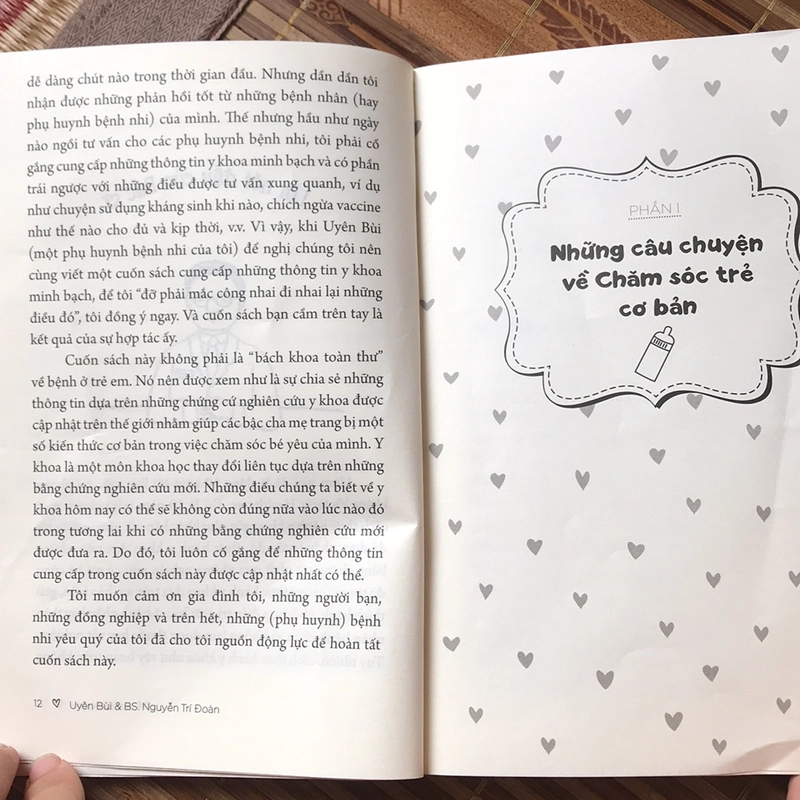 dễ dàng chút nào trong thời gian đầu. Nhưng dần dần tôi
nhận được những phản hồi tốt từ những bệnh nhân (hay
phụ huynh bệnh nhi) của mình. Thế nhưng hầu như ngày
nào ngồi tư vấn cho các phụ huynh bệnh nhi, tôi phải cố
gắng cung cấp những thông tin y khoa minh bạch và có phần
trái ngược với những điều được tư vấn xung quanh, ví dụ
như chuyện sử dụng kháng sinh khi nào, chích ngừa vaccine
như thế nào cho đủ và kịp thời, v.v. Vì vậy, khi Uyên Bùi
(một phụ huynh bệnh nhi của tôi) đề nghị chúng tôi nên
cùng viết một cuốn sách cung cấp những thông tin y khoa
minh bạch, để tôi “đỡ phải mắc công nhai đi nhai lại những
điều đó”, tôi đồng ý ngay. Và cuốn sách bạn cầm trên tay là
kết quả của sự hợp tác ấy.
Cuốn sách này không phải là “bách khoa toàn thư”
về bệnh ở trẻ em. Nó nên được xem như là sự chia sẻ những
thông tin dựa trên những chứng cứ nghiên cứu y khoa được
cập nhật trên thế giới nhằm giúp các bậc cha mẹ trang bị một
số kiến thức cơ bản trong việc chăm sóc bé yêu của mình. Y
khoa là một môn khoa học thay đổi liên tục dựa trên những
bằng chứng nghiên cứu mới. Những điều chúng ta biết về y
khoa hôm nay có thể sẽ không còn đúng nữa vào lúc nào đó
trong tương lai khi có những bằng chứng nghiên cứu mới
được đưa ra. Do đó, tôi luôn cố gắng để những thông tin
cung cấp trong cuốn sách này được cập nhật nhất có thể.
Tôi muốn cảm ơn gia đình tôi, những người bạn,
những đồng nghiệp và trên hết, những (phụ huynh) bệnh
nhi yêu quý của tôi đã cho tôi nguồn động lực để hoàn tất
cuốn sách này.
12 Uyên Bùi & BS. Nguyễn Trí Đoàn
PHẦN I
Những câu chuyện
về Chăm sóc trẻ
cơ bản